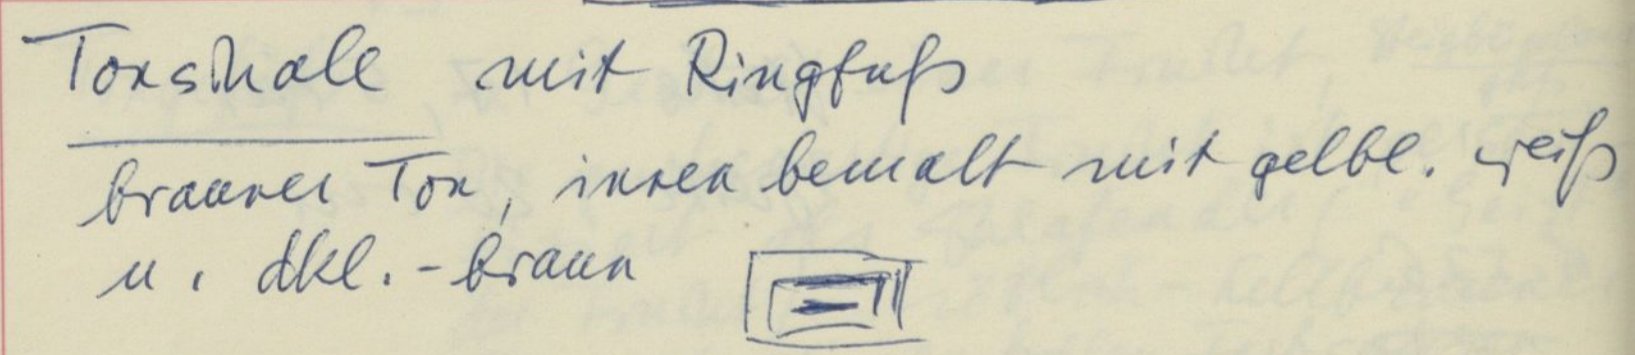 Tonschale mit Ringfuß
brauner Ton, innen bemalt mit gelbl. weiß
u. dkl.-braun